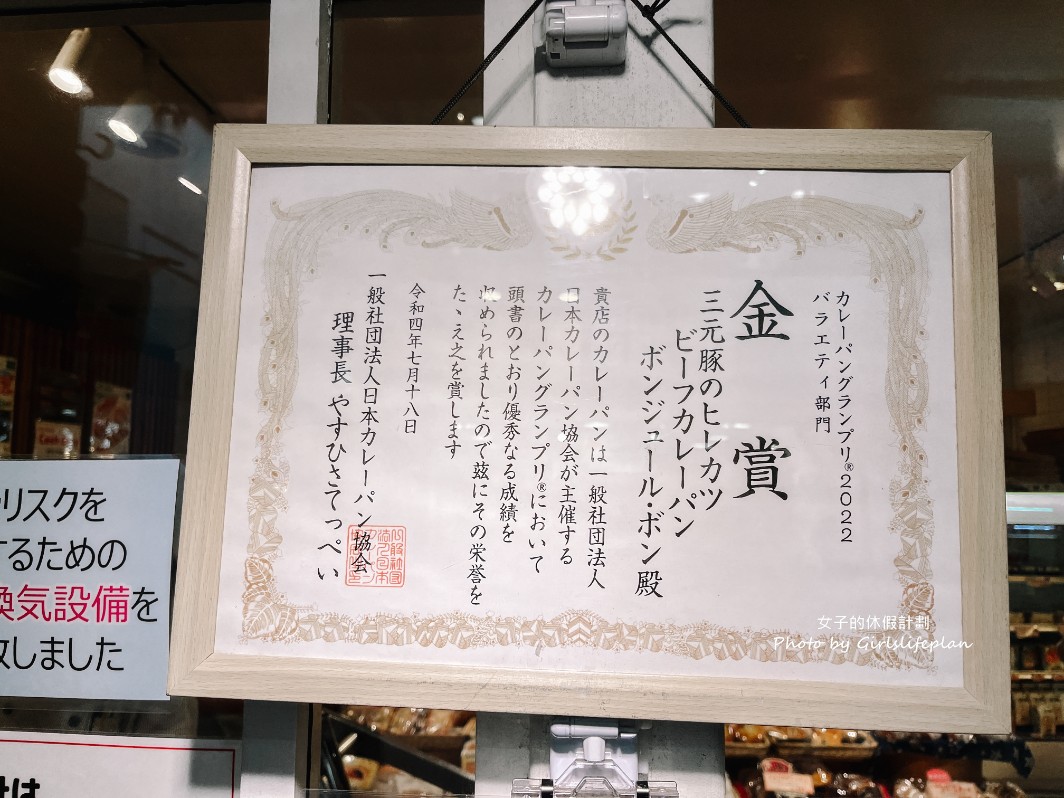 カレーパングランプリ®2022
バラエティ部門
金賞
三元豚のヒレカツ
ビーフカレーパン
ボンジュール・ボン殿
貴店のカレーパンは一般社団法人
日本カレーパン協会が主催する
カレーパングランプリ®において
頭書のとおり優秀なる成績を
収められましたので茲にその栄誉を
たゝえ之を賞します
令和四年七月十八日
一般社団法人日本カレーパン協会
理事長 やすひさてっぺい
リスクを
するための
換気設備を
しました
は
女子的休假計劃
Photo by Girlslifeplan